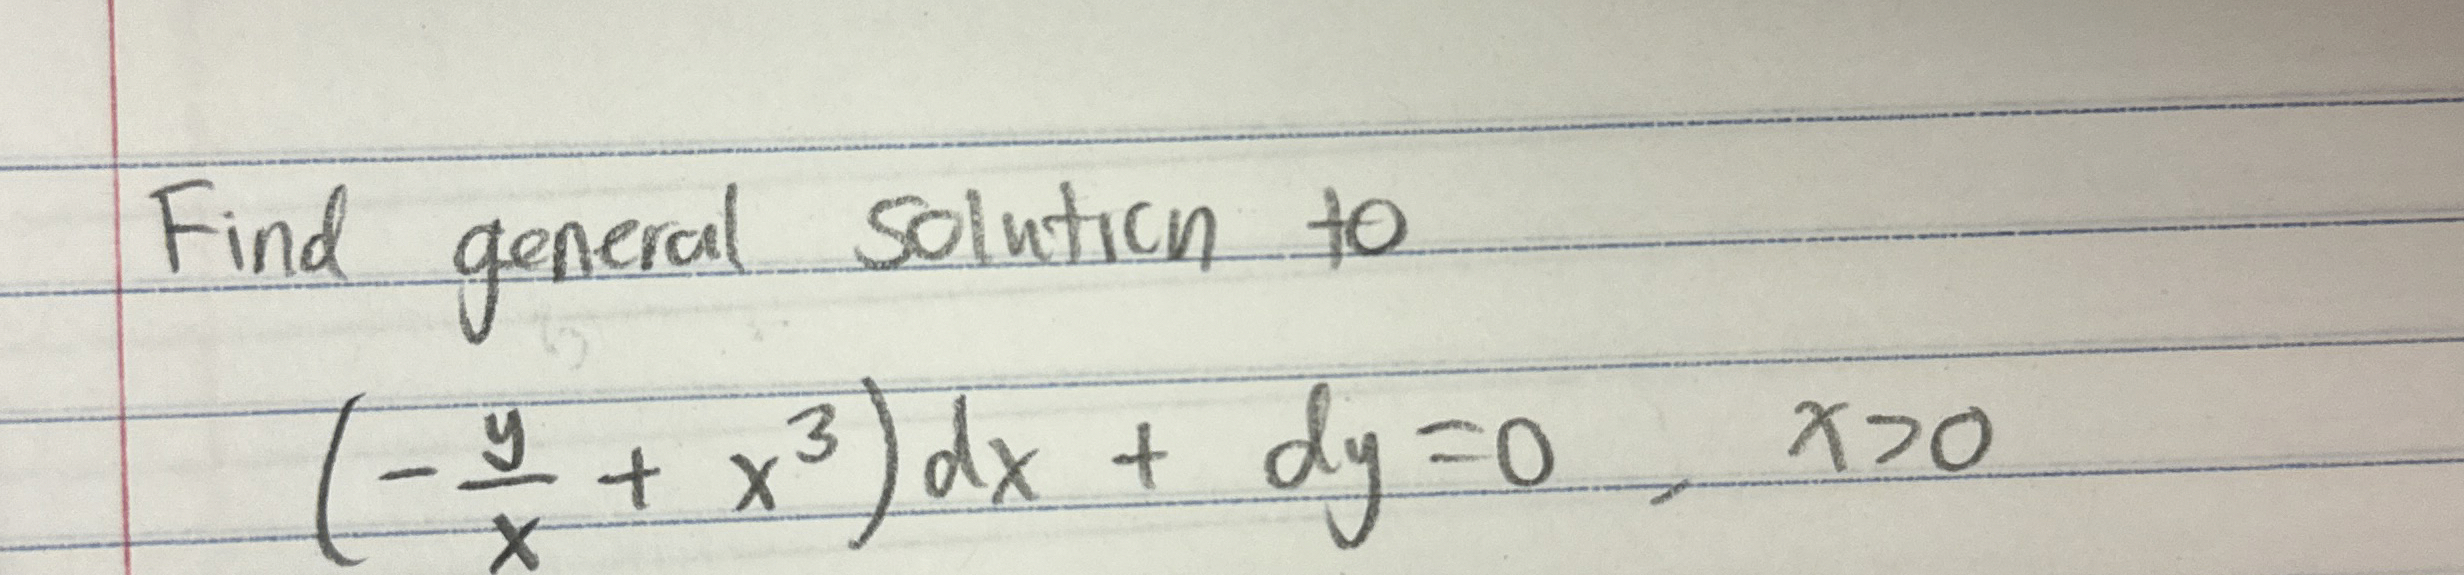 Find general solution to
(-y/x + x³)dx + dy=0, x>0